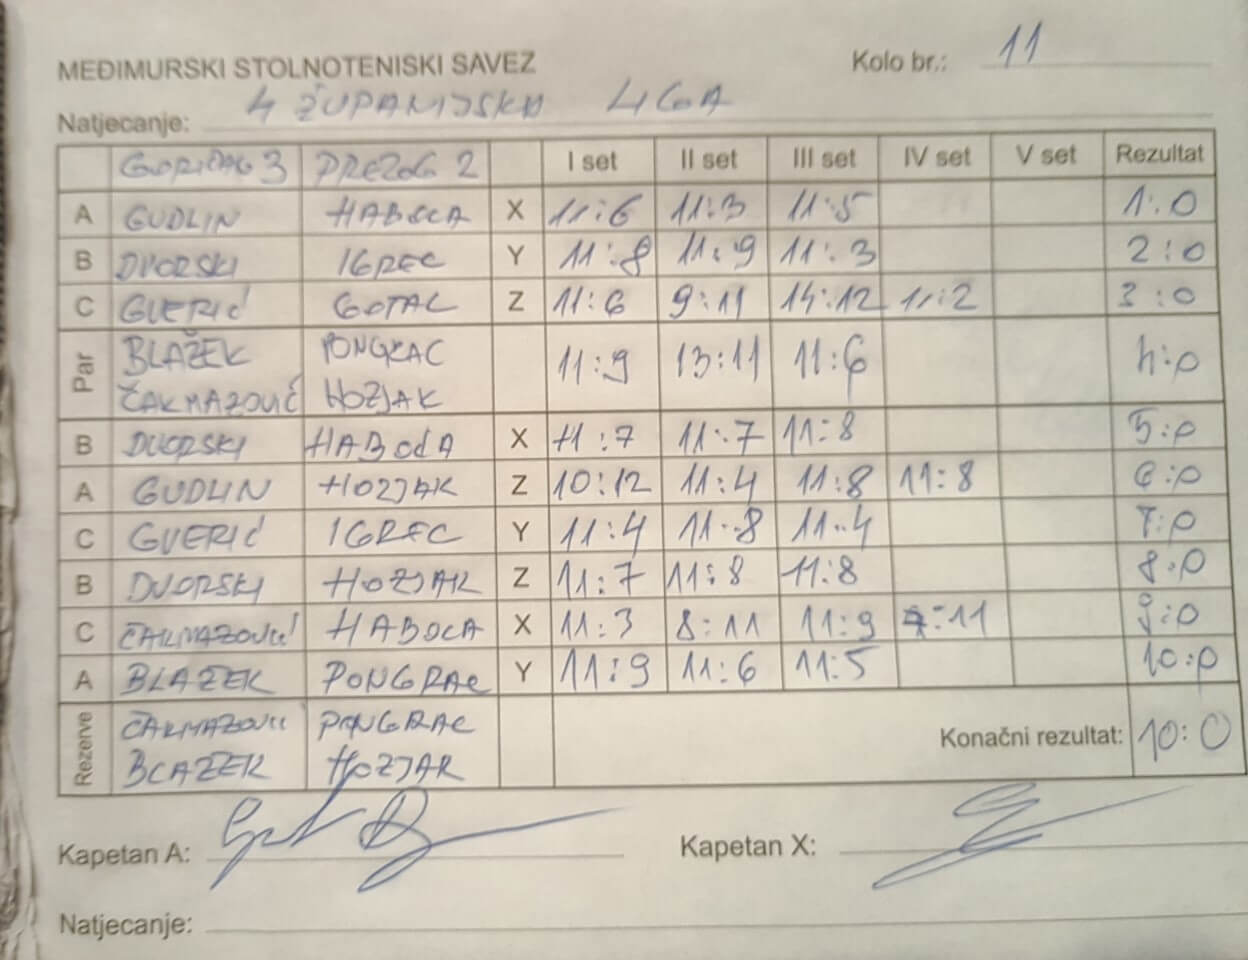 MEĐIMURSKI STOLNOTENISKI SAVEZ
Kolo br.: 11
Natjecanje: 4 ŽUPANIJSKA LIGA
GORIČAN 3 PREZOG 2 I set II set III set IV set V set Rezultat
A GUDLIN HABOCA X 11:6 11:3 11:5 1:0
B DVORSKI IGREC Y 11:8 11:9 11:3 2:0
C GVERIĆ GOTAL Z 11:6 9:11 14:12 11:2 3:0
Par BLAŽEK PONGRAC 11:9 13:11 11:6 4:0
ČAKMAZOVIĆ HOZJAK
B DVORSKI HABOCA X 11:7 11:7 11:8 5:0
A GUDLIN HOZJAK Z 10:12 11:4 11:8 11:8 6:0
C GVERIĆ IGREC Y 11:4 11:8 11:4 7:0
B DVORSKI HOZJAK Z 11:7 11:8 11:8 8:0
C ČAKMAZOVIĆ HABOCA X 11:3 8:11 11:9 :11 9:0
A BLAZEK PONGRAC Y 11:9 11:6 11:5 10:0
Rezerve ČAKMAZOVIĆ PONGRAC
BLAZEK HOZJAK
Konačni rezultat: 10:0
Kapetan A:
Kapetan X:
Natjecanje: